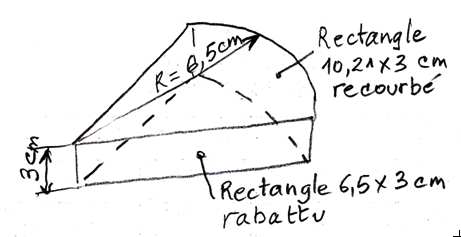 R = 6,5cm
Rectangle
10,21 x 3 cm
recourbé
3 cm
Rectangle 6,5 x 3 cm
rabattu